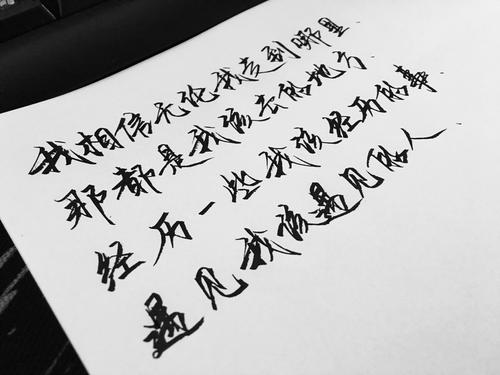 我相信无论我走到哪里.
那都是我该去的地方.
经历一些我该经历的事.
遇见我该遇见的人.